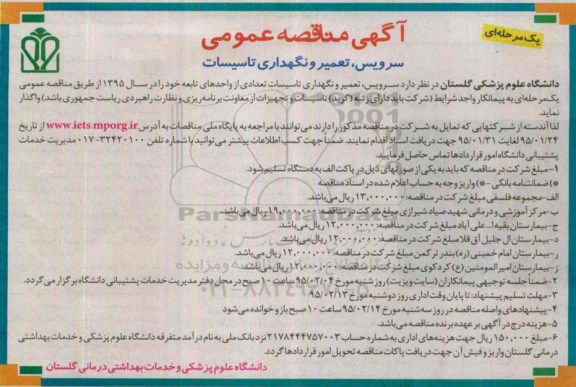 یک مرحله‌ای
آگهی مناقصه عمومی
سرویس، تعمیر و نگهداری تاسیسات
دانشگاه علوم پزشکی گلستان در نظر دارد سرویس، تعمیر و نگهداری تاسیسات تعدادی از واحدهای تابعه خود را در سال ۱۳۹۵ از طریق مناقصه عمومی
یک‌مرحله‌ای به پیمانکار واجد شرایط (شرکت باید دارای رتبه (گرید) تاسیسات و تجهیزات از معاونت برنامه‌ریزی و نظارت راهبردی ریاست جمهوری باشد) واگذار
نماید.
لذا آندسته از شرکتهایی که تمایل به شرکت در مناقصه مذکور را دارند می‌توانند با مراجعه به پایگاه ملی مناقصات به آدرس www.iets.mporg.ir از تاریخ
۹۵/۰۱/۲۴ لغایت ۹۵/۰۱/۳۱ جهت دریافت اسناد اقدام نمایند. ضمناً جهت کسب اطلاعات بیشتر می‌توانید با شماره تلفن ۳۲۴۲۰۱۰۰-۰۱۷ مدیریت خدمات
پشتیبانی دانشگاه امور قراردادها تماس حاصل فرمایید.
۱- مبلغ شرکت در مناقصه که باید به یکی از صورتهای ذیل در پاکت الف به دستگاه تسلیم شود.
*) ضمانتنامه بانکی -*) واریز وجه به حساب اعلام شده در اسناد مناقصه
الف- مجموعه فلسفی مبلغ شرکت در مناقصه: ۱۳,۰۰۰,۰۰۰ ریال می‌باشد.
ب- مرکز آموزشی و درمانی شهید صیاد شیرازی مبلغ شرکت در مناقصه: ۱۹,۰۰۰,۰۰۰ ریال می‌باشد.
ج- بیمارستان بقیه‌ا... علی‌آباد مبلغ شرکت در مناقصه: ۱۲,۰۰۰,۰۰۰ ریال می‌باشد.
د- بیمارستان آل جلیل آق قلا مبلغ شرکت در مناقصه: ۱۲,۰۰۰,۰۰۰ ریال می‌باشد.
ر- بیمارستان امام خمینی (ره) بندر ترکمن مبلغ شرکت در مناقصه: ۱۲,۰۰۰,۰۰۰ ریال می‌باشد.
ز- بیمارستان امیرالمومنین (ع) کردکوی مبلغ شرکت در مناقصه: ۱۲,۰۰۰,۰۰۰ ریال می‌باشد.
۲- ضمناً جلسه توجیهی پیمانکاران (سایت ویزیت) روز شنبه مورخ ۹۵/۰۲/۰۴ ساعت ۱۰ صبح در محل دفتر مدیریت خدمات پشتیبانی دانشگاه برگزار می‌گردد.
۳- مهلت تسلیم پیشنهاد: تا پایان وقت اداری روز دوشنبه مورخ ۹۵/۰۲/۱۳
۴- پیشنهادهای واصله مناقصه در روز سه‌شنبه مورخ ۹۵/۰۲/۱۴ ساعت ۱۰ صبح باز و خوانده می‌شود
۵- هزینه درج در آگهی بر عهده برنده مناقصه می‌باشد.
۶- مبلغ ۱۵۰,۰۰۰ ریال جهت هزینه‌های اداری به شماره حساب ۲۱۷۸۴۴۴۷۵۷۰۰۳ نزد بانک ملی به نام درآمد متفرقه دانشگاه علوم پزشکی و خدمات بهداشتی
درمانی گلستان واریز و فیش آن جهت دریافت پاکات مناقصه تحویل امور قراردادها گردد.
دانشگاه علوم پزشکی و خدمات بهداشتی درمانی گلستان